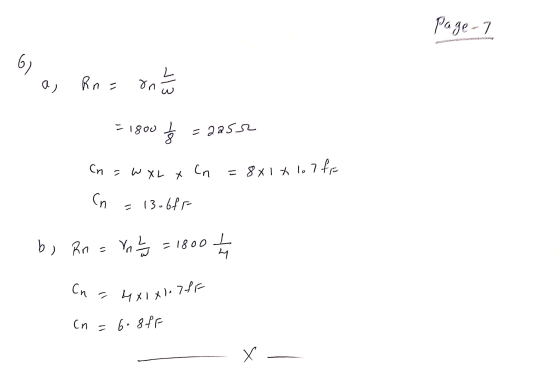 Page-7
6)
a) Rn = rn L/w
= 1800 1/8 = 225Ω
Cn = w x L x Cn = 8 x 1 x 1.7fF
Cn = 13.6fF
b) Rn = rn L/w = 1800 1/4
Cn = 4x1x1.7fF
Cn = 6.8fF
x